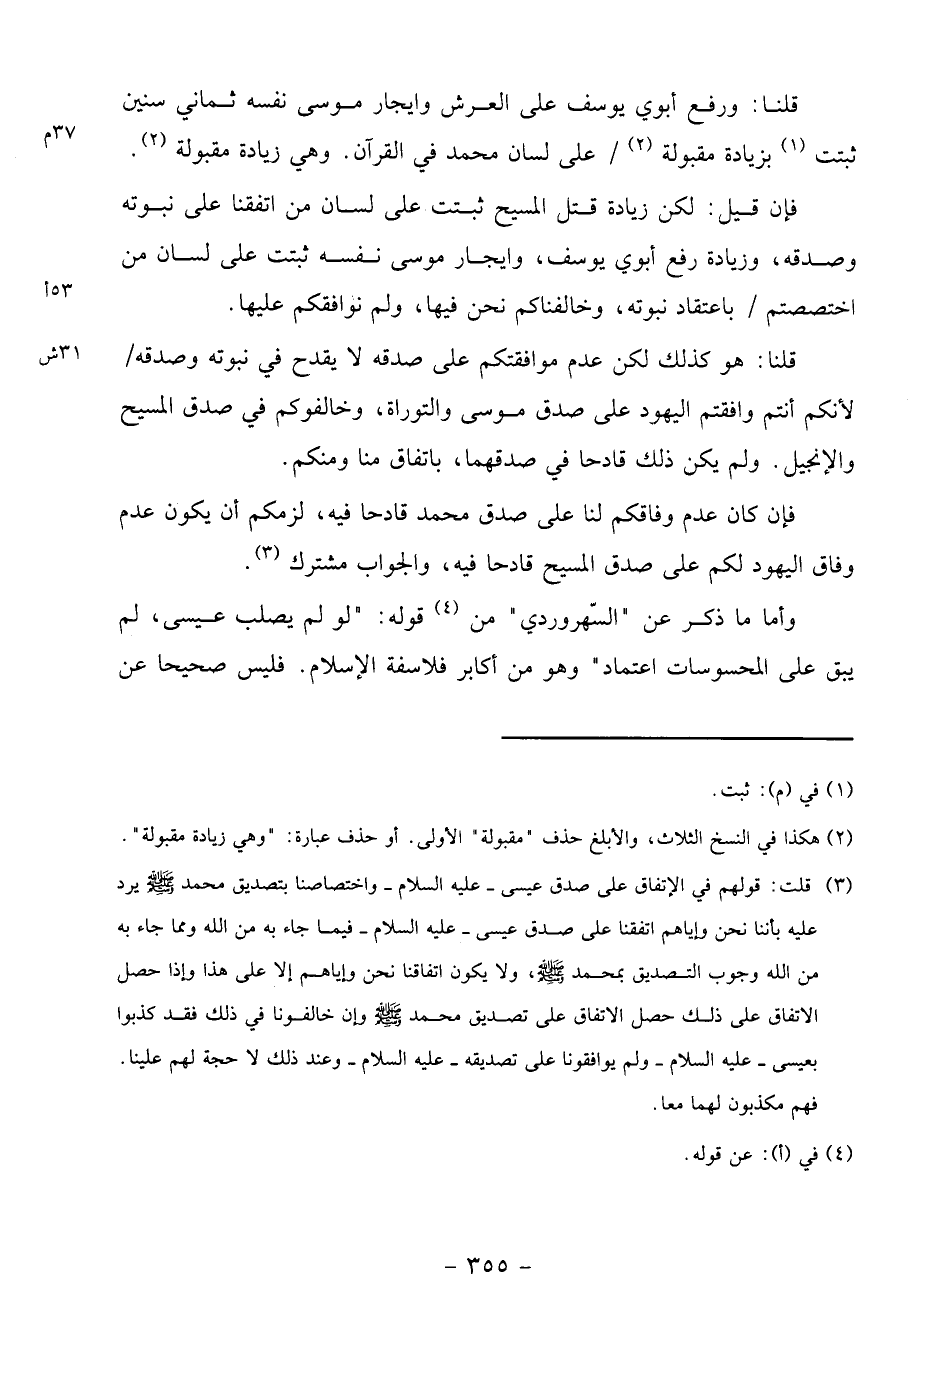 قلنا: ورفع أبوي يوسف على العرش وايجار موسى نفسه ثماني سنين
ثبتت (١) بزيادة مقبولة (٢) / على لسان محمد في القرآن. وهي زيادة مقبولة (٢).
٣٧م
فإن قيل: لكن زيادة قتل المسيح ثبتت على لسان من اتفقنا على نبوته
وصدقه، وزيادة رفع أبوي يوسف، وايجار موسى نفسه ثبتت على لسان من
اختصصتم / باعتقاد نبوته، وخالفناكم نحن فيها، ولم نوافقكم عليها.
٥٣أ
قلنا: هو كذلك لكن عدم موافقتكم على صدقه لا يقدح في نبوته وصدقه/
٣١ش
لأنكم أنتم وافقتم اليهود على صدق موسى والتوراة، وخالفوكم في صدق المسيح
والإنجيل. ولم يكن ذلك قادحا في صدقهما، باتفاق منا ومنكم.
فإن كان عدم وفاقكم لنا على صدق محمد قادحا فيه، لزمكم أن يكون عدم
وفاق اليهود لكم على صدق المسيح قادحا فيه، والجواب مشترك (٣).
وأما ما ذكر عن "السّهروردي" من (٤) قوله: "لو لم يصلب عيسى، لم
يبق على المحسوسات اعتماد" وهو من أكابر فلاسفة الإسلام. فليس صحيحا عن
(١) في (م): ثبت.
(٢) هكذا في النسخ الثلاث، والأبلغ حذف "مقبولة" الأولى. أو حذف عبارة: "وهي زيادة مقبولة".
(٣) قلت: قولهم في الإتفاق على صدق عيسى ـ عليه السلام ـ واختصاصنا بتصديق محمد ﷺ يرد
عليه بأننا نحن وإياهم اتفقنا على صدق عيسى ـ عليه السلام ـ فيما جاء به من الله ومما جاء به
من الله وجوب التصديق بمحمد ﷺ، ولا يكون اتفاقنا نحن وإياهم إلا على هذا وإذا حصل
الاتفاق على ذلك حصل الاتفاق على تصديق محمد ﷺ وإن خالفونا في ذلك فقد كذبوا
بعيسى ـ عليه السلام ـ ولم يوافقونا على تصديقه ـ عليه السلام ـ وعند ذلك لا حجة لهم علينا.
فهم مكذبون لهما معا.
(٤) في (أ): عن قوله.
- ٣٥٥ -